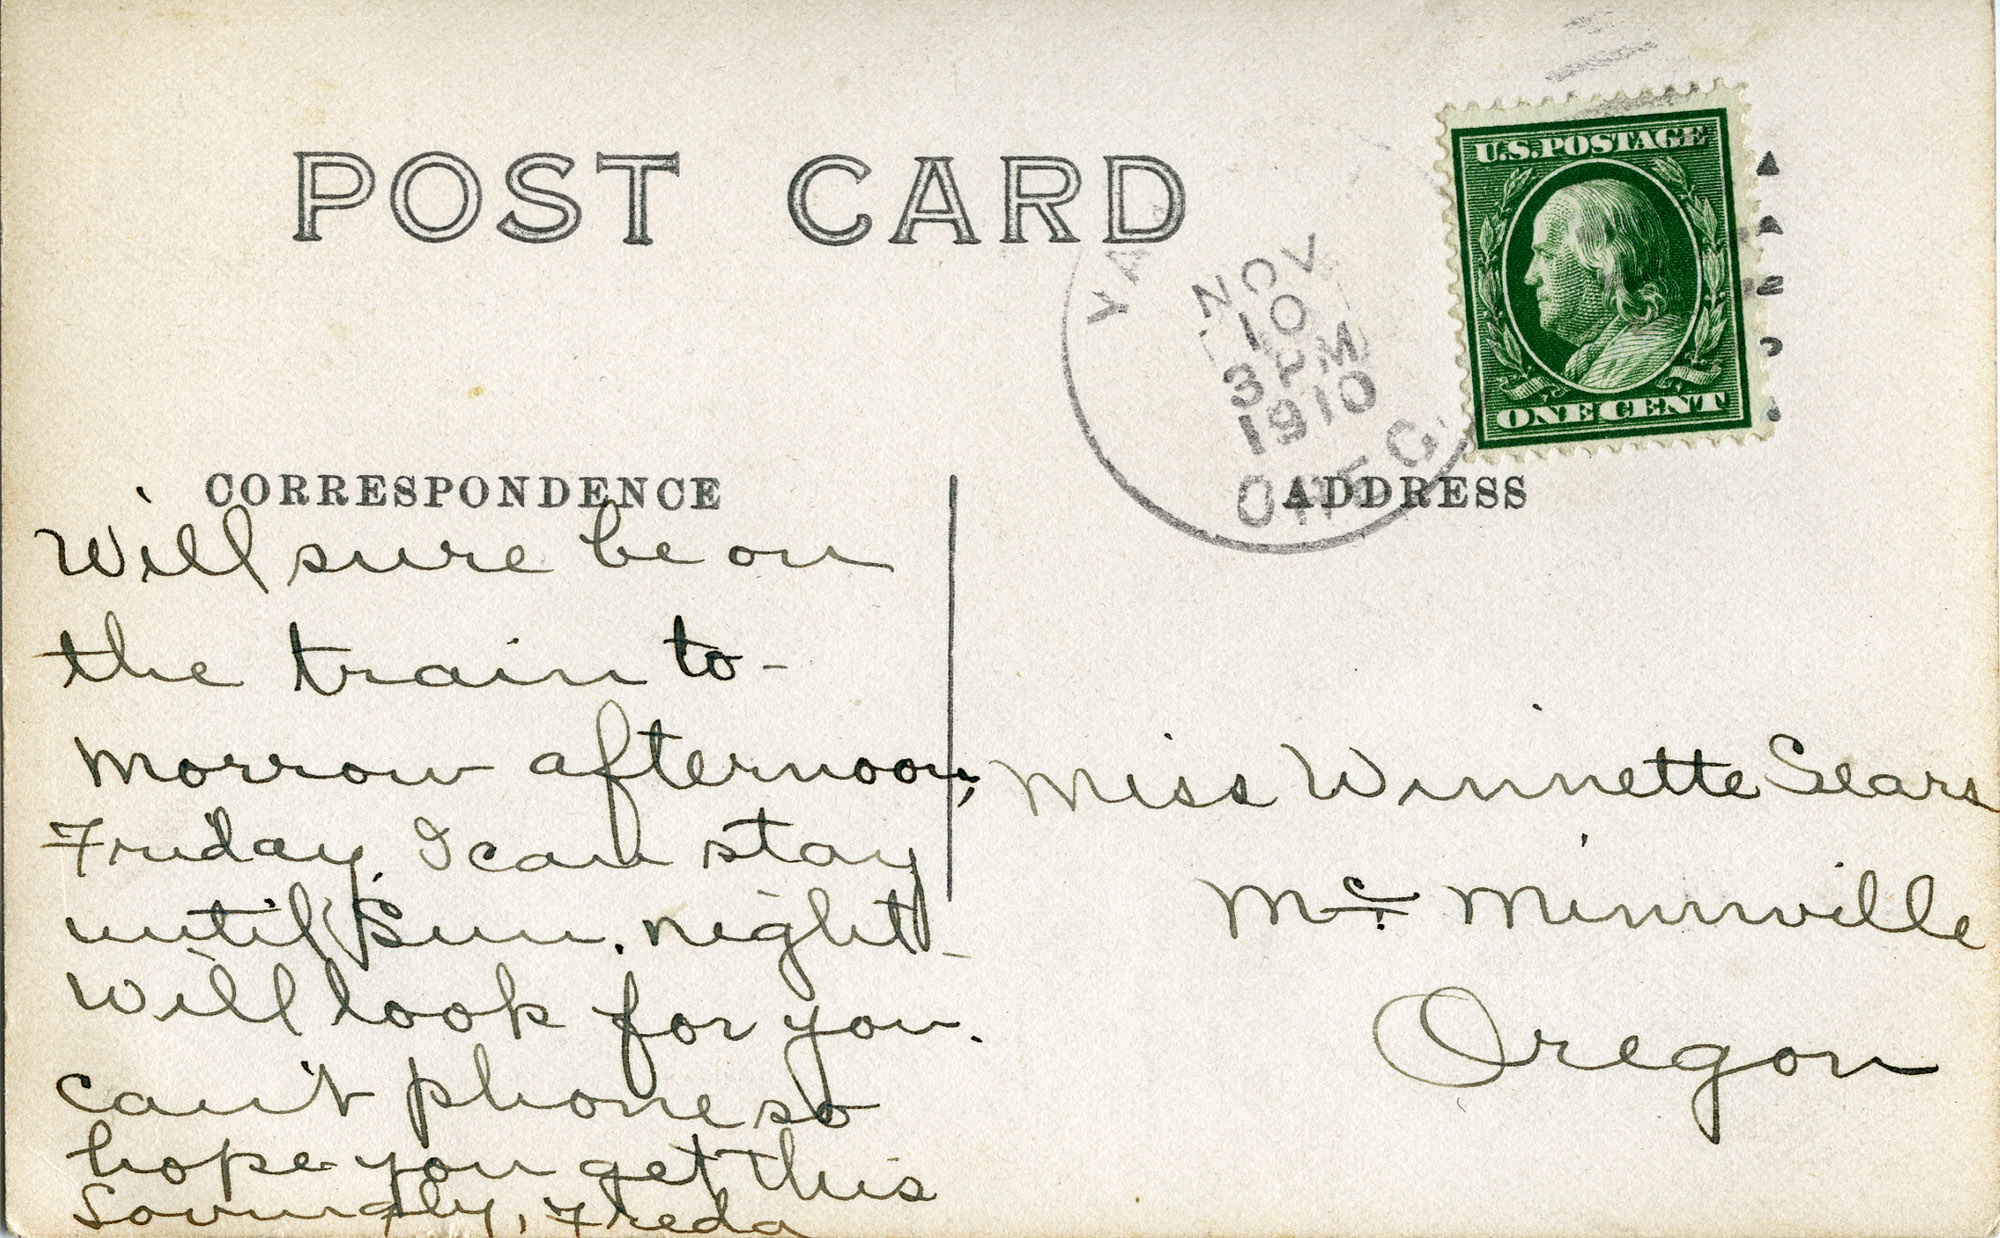 POST CARD
U.S.POSTAGE
ONE CENT
NOV
10
3 PM
1910
OREG.
CORRESPONDENCE
ADDRESS
Will sure be on
the train to-
morrow afternoon,
Friday. I can stay
until Sun. night-
Will look for you.
can't phone so
hope you get this
Lovingly, Freda
Miss Winnette Sears
Mc. Minnville
Oregon